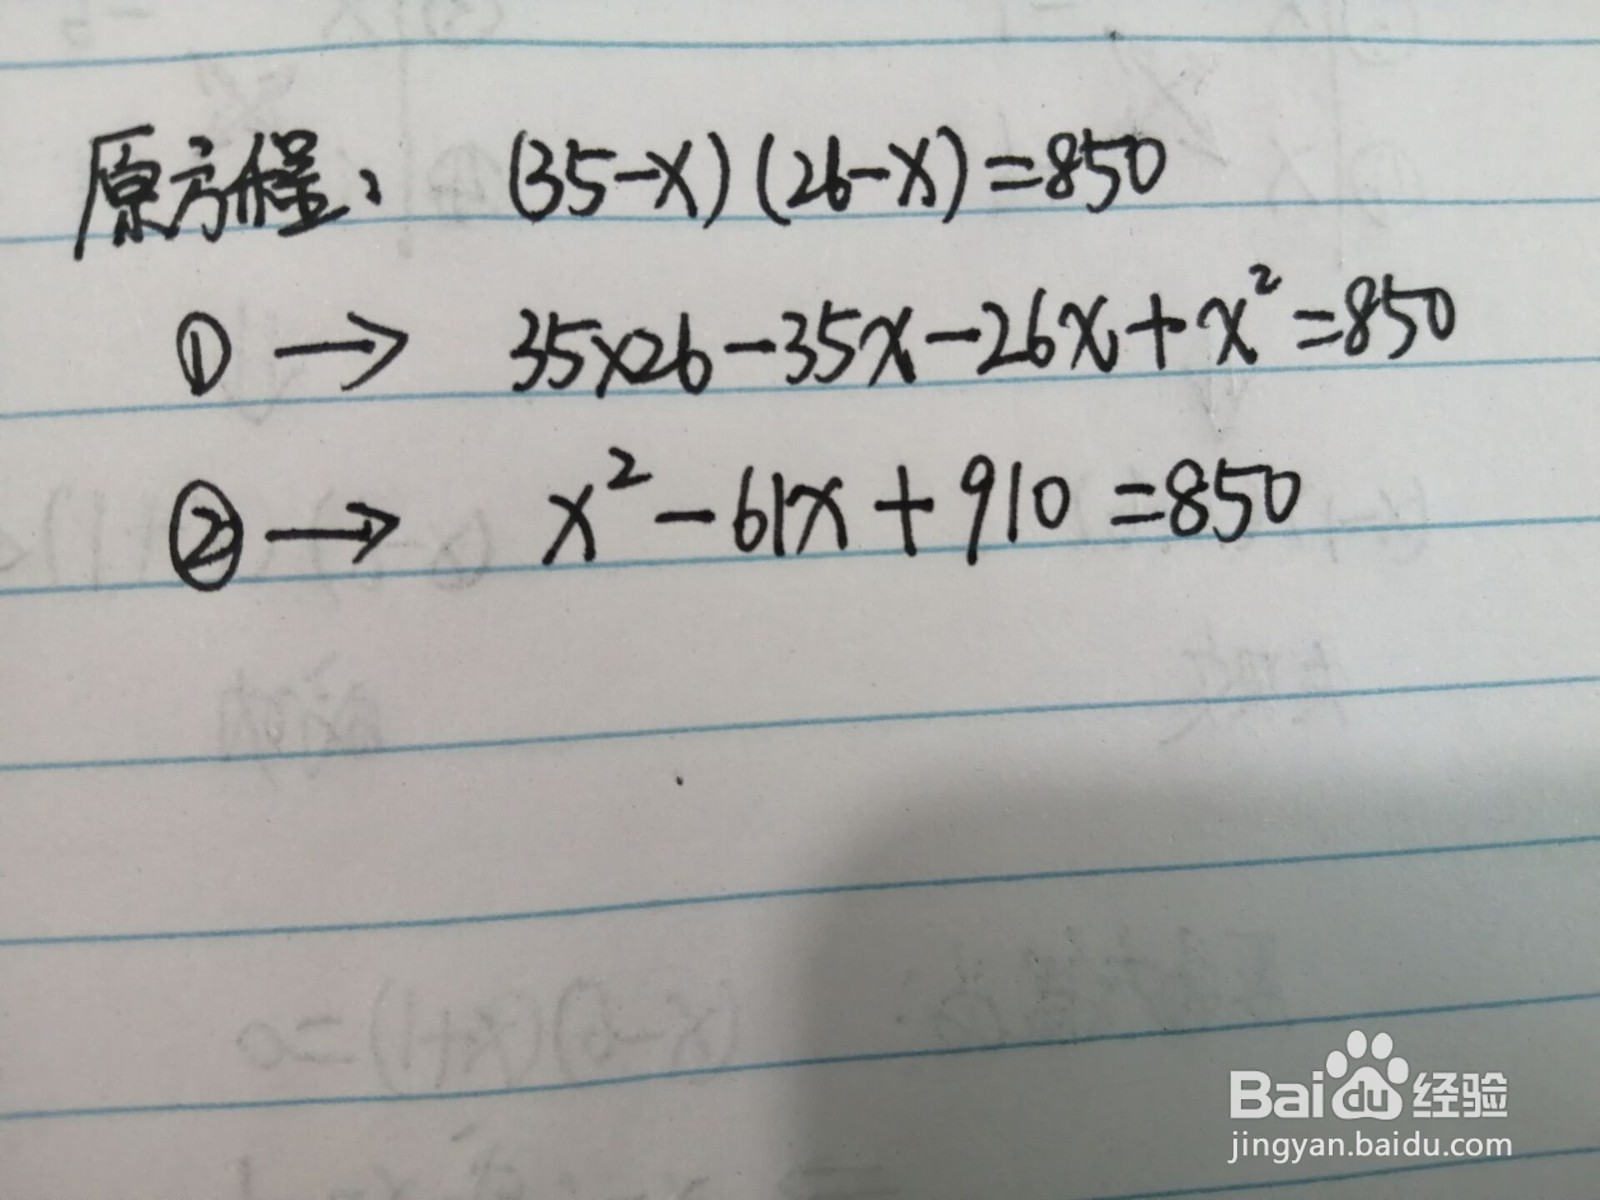 原方程： (35-x)(26-x)=850
① → 35×26-35x-26x+x²=850
② → x²-61x+910=850
(x-6)(x+1)=0
Baidu经验
jingyan.baidu.com